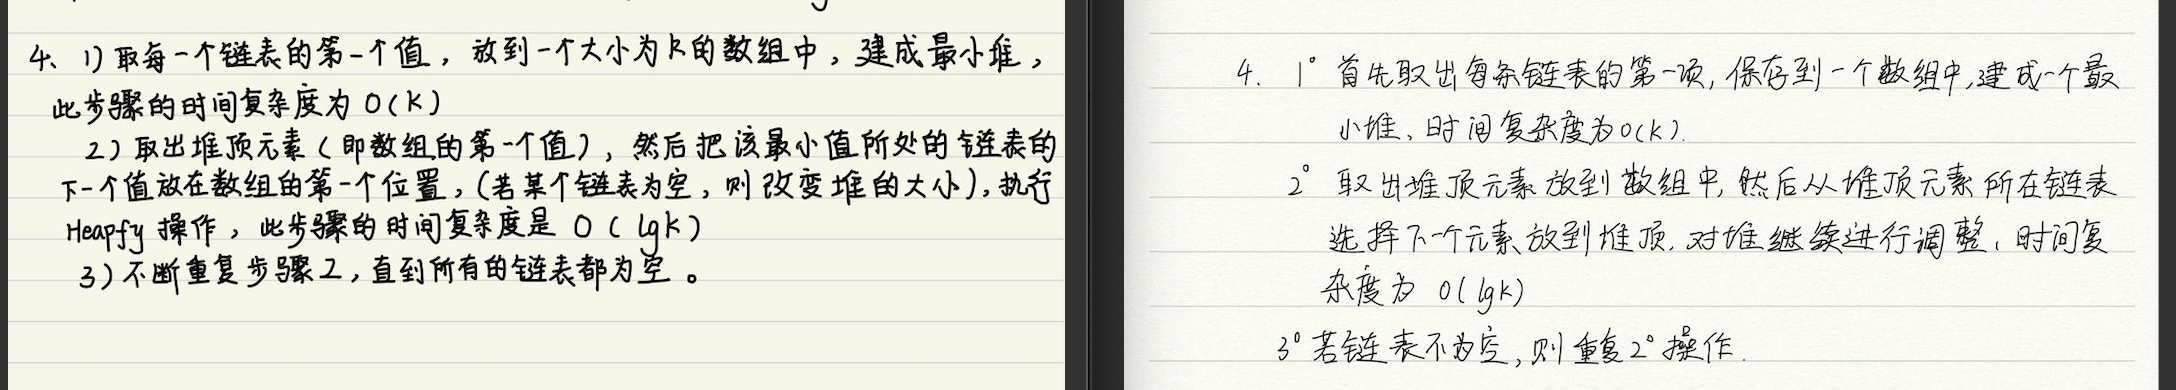 4、1)取每一个链表的第一个值，放到一个大小为k的数组中，建成最小堆，
此步骤的时间复杂度为 O(K)
2)取出堆顶元素(即数组的第一个值)，然后把该最小值所处的链表的
下一个值放在数组的第一个位置，(若某个链表为空，则改变堆的大小)，执行
Heapfy 操作，此步骤的时间复杂度是 O(lgk)
3)不断重复步骤2，直到所有的链表都为空。
4. 1° 首先取出每条链表的第一项，保存到一个数组中，建成一个最
小堆、时间复杂度为O(k).
2° 取出堆顶元素放到数组中，然后从堆顶元素所在链表
选择下一个元素放到堆顶，对堆继续进行调整，时间复
杂度为 O(lgk)
3° 若链表不为空，则重复2°操作.